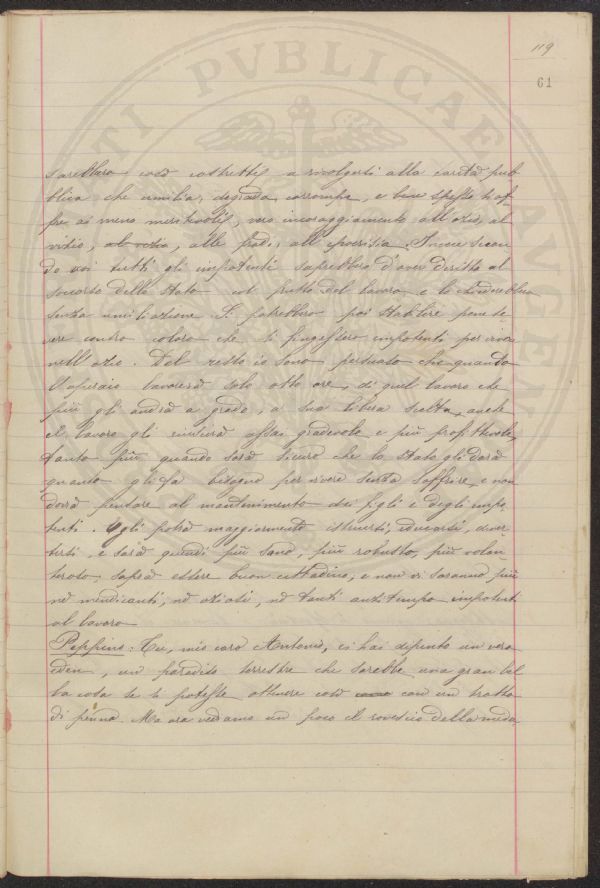 119
61
sarebbero così costretti, a rivolgersi alla carità pub
blica che umilia, degrada, corrompe, e bene spesso si of
fre ai meno meritevoli, vero incoraggiamento all'ozio, al
vizio, al vizio, alle frodi, all'ipocrisia. Invece secon
do voi tutti gli impotenti saprebbero d'aver diritto al
soccorso dello Stato col frutto del lavoro e lo chiederebbero
senza umiliazione. Si potrebbero poi stabilire pene se
vere contro coloro che si fingessero impotenti per vivere
nell'ozio. Del resto io sono persuaso che quanto
l'operaio lavorerà solo otto ore, di quel lavoro che
più gli andrà a grado, a sua libera scelta, anche
il lavoro gli riuscirà assai gradevole e più profittevole,
tanto più quando sarà sicuro che lo Stato gli darà
quanto gli fa bisogno per vivere senza soffrire, e non
dovrà pensare al mantenimento dei figli e degli impo
tenti. Egli potrà maggiormente istruirsi, educarsi, diver
tirsi, e sarà quindi più sano, più robusto, più volen
teroso, saprà essere buon cittadino, e non vi saranno più
nè mendicanti, nè oziosi, nè tanti anzitempo impotenti
al lavoro
Peppino: Tu, mio caro Antonio, ci hai dipinto un vero
eden, un paradiso terrestre che sarebbe una gran bel
la cosa se si potesse ottenere così con un tratto
di penna. Ma ora vediamo un poco il rovescio della meda
PUBLICAE